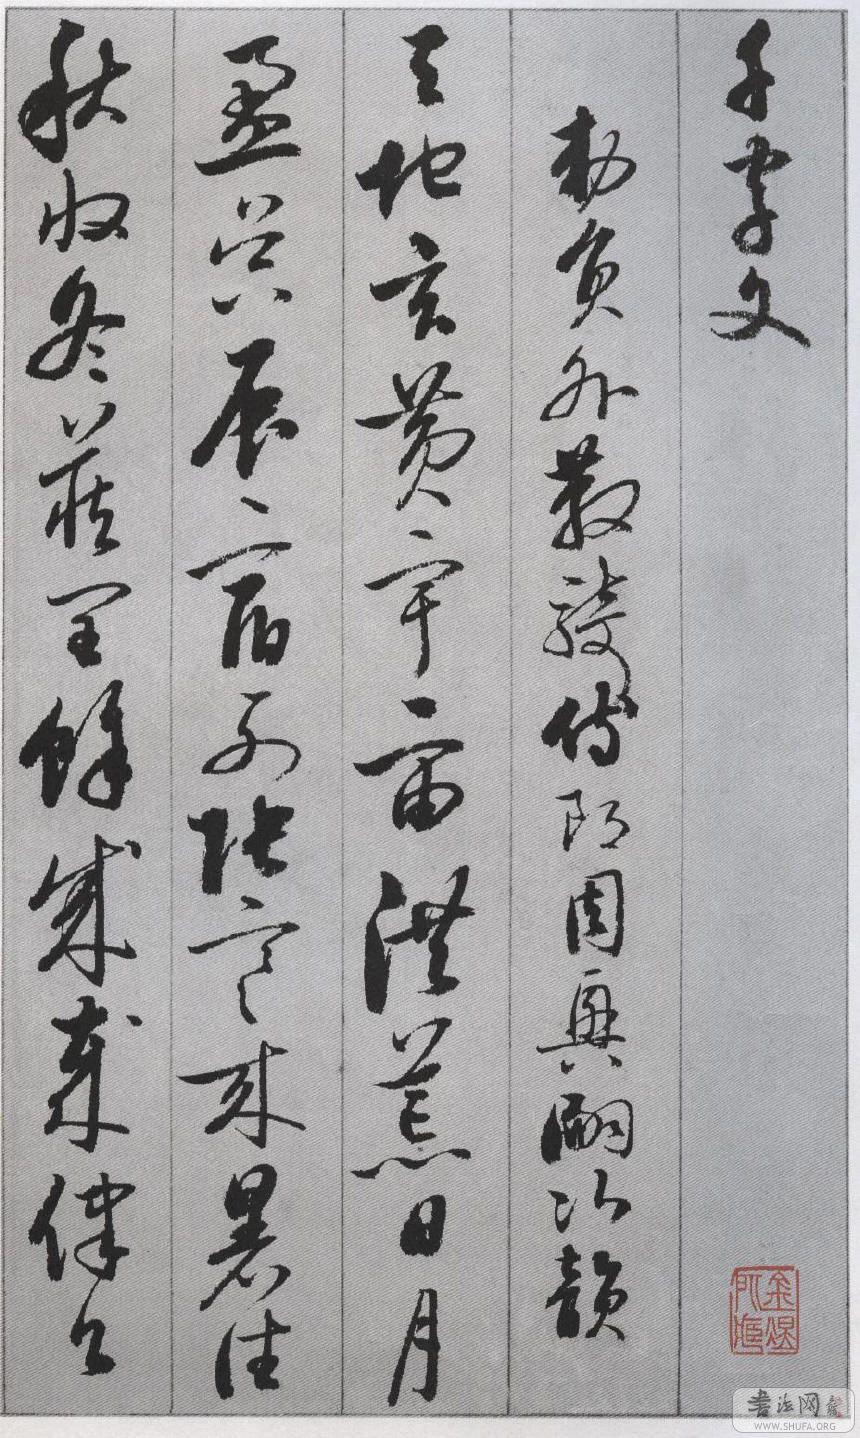 千字文
勅員外散騎侍郎周興嗣次韻
天地玄黃宇宙洪荒日月
盈昃辰宿列張寒來暑往
秋收冬藏閏餘成歲律召
书法网
WWW.SHUFA.ORG